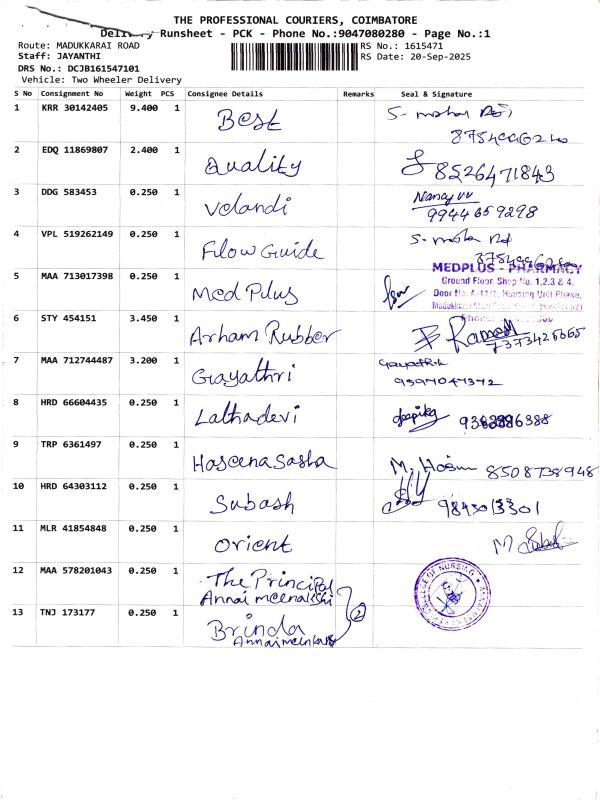 THE PROFESSIONAL COURIERS, COIMBATORE
Delivery Runsheet - PCK - Phone No.:9047080280 - Page No.:1
Route: MADUKKARAI ROAD RS No.: 1615471
Staff: JAYANTHI RS Date: 20-Sep-2025
DRS No.: DCJB161547101
Vehicle: Two Wheeler Delivery
S No Consignment No Weight PCS Consignee Details Remarks Seal & Signature
1 KRR 30142405 9.400 1 Best
2 EDQ 11869807 2.400 1 Quality 8526471843
3 DDG 583453 0.250 1 Velandi Nancy vv
9944659298
4 VPL 519262149 0.250 1 Filow Guide
MEDPLUS - PHARMACY
5 MAA 713017398 0.250 1 Med Plus Ground Floor, Shop No. 1,2,3 & 4,
Door No. A-11/1, Housing Unit Phase,
6 STY 454151 3.450 1 Arham Rubber Ramesh
7373426665
7 MAA 712744487 3.200 1 Gayathri Gayathri.k
9597047372
8 HRD 66604435 0.250 1 Lalthadevi deepika
9 TRP 6361497 0.250 1 Haseena Sasha M. 8508738948
10 HRD 64303112 0.250 1 Subash
11 MLR 41854848 0.250 1 Orient M
12 MAA 578201043 0.250 1 The Principal
Annai meenakshi
COLLEGE OF NURSING
13 TNJ 173177 0.250 1 Brinda 2
Annai meenkashi